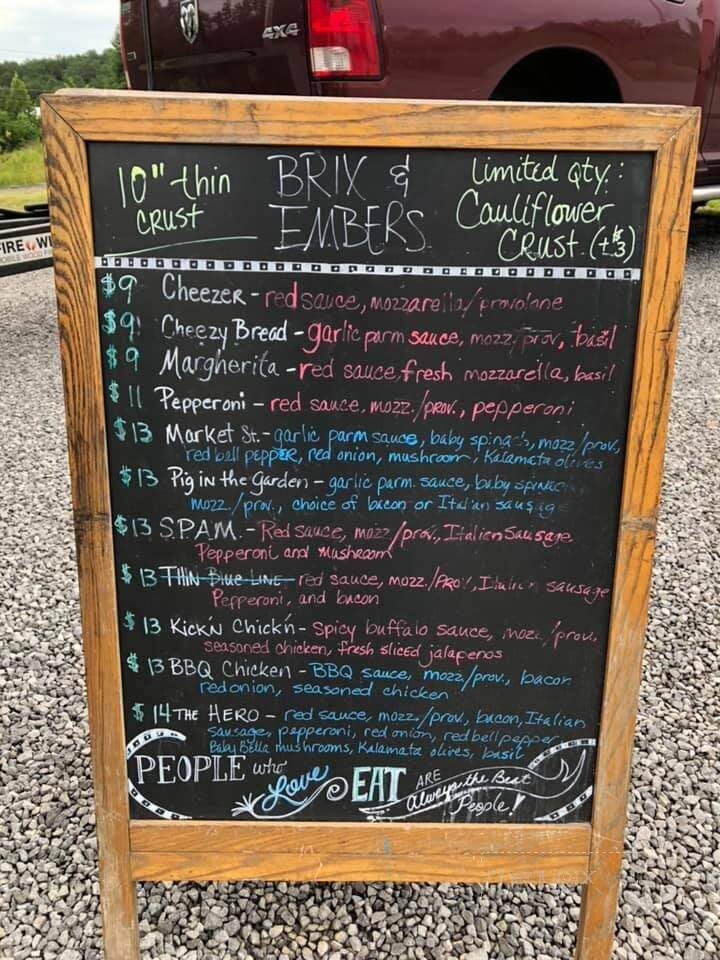 4X4
10" thin
CRUST
BRIX &
EMBERS
Limited qty.:
Cauliflower
CRUST (+$3)
FIRE
$9 Cheezer - red sauce, mozzarella/provolone
$9 Cheezy Bread - garlic parm sauce, mozz/prov, basil
$9 Margherita - red sauce, fresh mozzarella, basil
$11 Pepperoni - red sauce, mozz./prov., pepperoni
$13 Market St. - garlic parm sauce, baby spinach, mozz/prov,
red bell pepper, red onion, mushroom, Kalamata olives
$13 Pig in the Garden - garlic parm. sauce, baby spinach
mozz./prov., choice of bacon or Italian sausage
$13 S.P.A.M. - Red sauce, mozz/prov, Italian Sausage
Pepperoni and Mushroom
$13 THIN Blue LINE - red sauce, mozz./prov, Italian sausage
Pepperoni, and bacon
$13 Kick'N Chick'n - Spicy buffalo sauce, mozz./prov.
seasoned chicken, fresh sliced jalapenos
$13 BBQ Chicken - BBQ sauce, mozz/prov., bacon
red onion, seasoned chicken
$14 THE HERO - red sauce, mozz./prov, bacon, Italian
sausage, pepperoni, red onion, red bell pepper,
Baby Bella mushrooms, Kalamata olives, basil
PEOPLE who Love EAT ARE
always the Best
People!